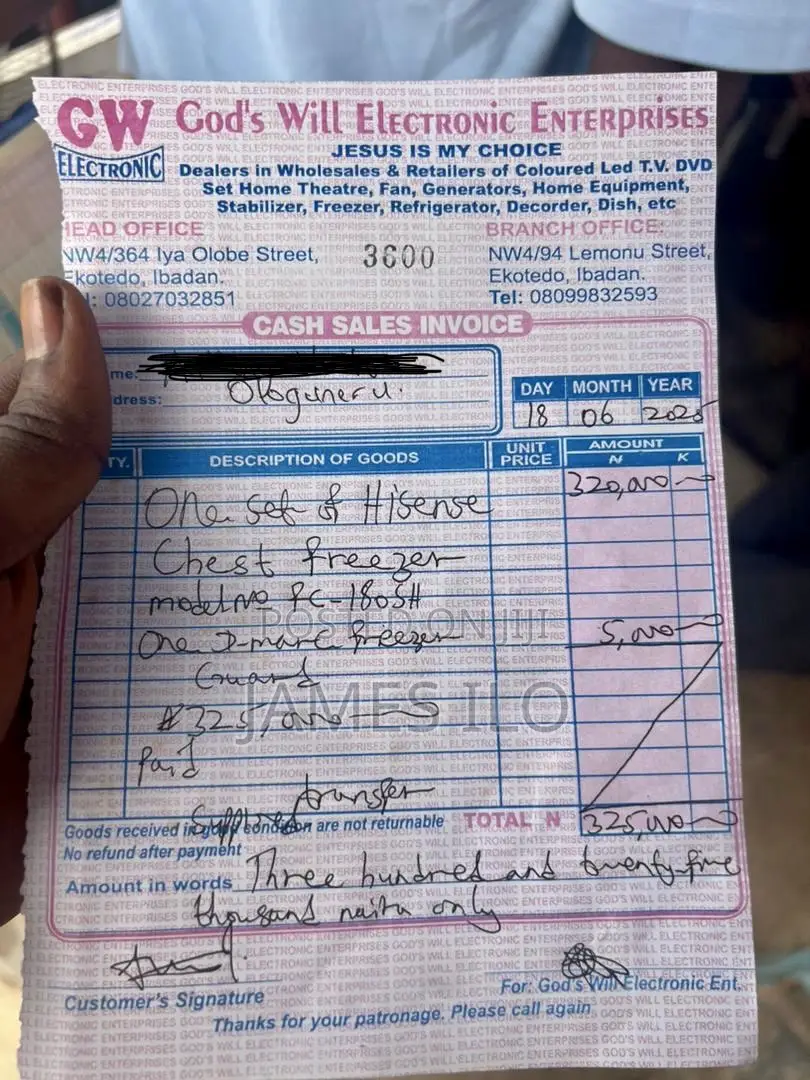 GW
ELECTRONIC
God's Will Electronic Enterprises
JESUS IS MY CHOICE
Dealers in Wholesales & Retailers of Coloured Led T.V. DVD
Set Home Theatre, Fan, Generators, Home Equipment,
Stabilizer, Freezer, Refrigerator, Decorder, Dish, etc
HEAD OFFICE
NW4/364 Iya Olobe Street,
Ekotedo, Ibadan.
08027032851
3600
BRANCH OFFICE:
NW4/94 Lemonu Street,
Ekotedo, Ibadan.
Tel: 08099832593
CASH SALES INVOICE
me:
dress: Ologuneru.
DAY MONTH YEAR
18 06 2025
TY. DESCRIPTION OF GOODS UNIT PRICE AMOUNT
N K
One set of Hisense 320,000
Chest freezer
model no FC-180SH
One D-marc freezer 5,000
Guard
₦325,000
Paid
transfer
Supplied
POSTED ON JIJI
JAMES ILO
Goods received in good condition are not returnable
No refund after payment
TOTAL N 325,000
Amount in words Three hundred and twenty-five
thousand naira only
Customer's Signature
For: God's Will Electronic Ent.
Thanks for your patronage. Please call again